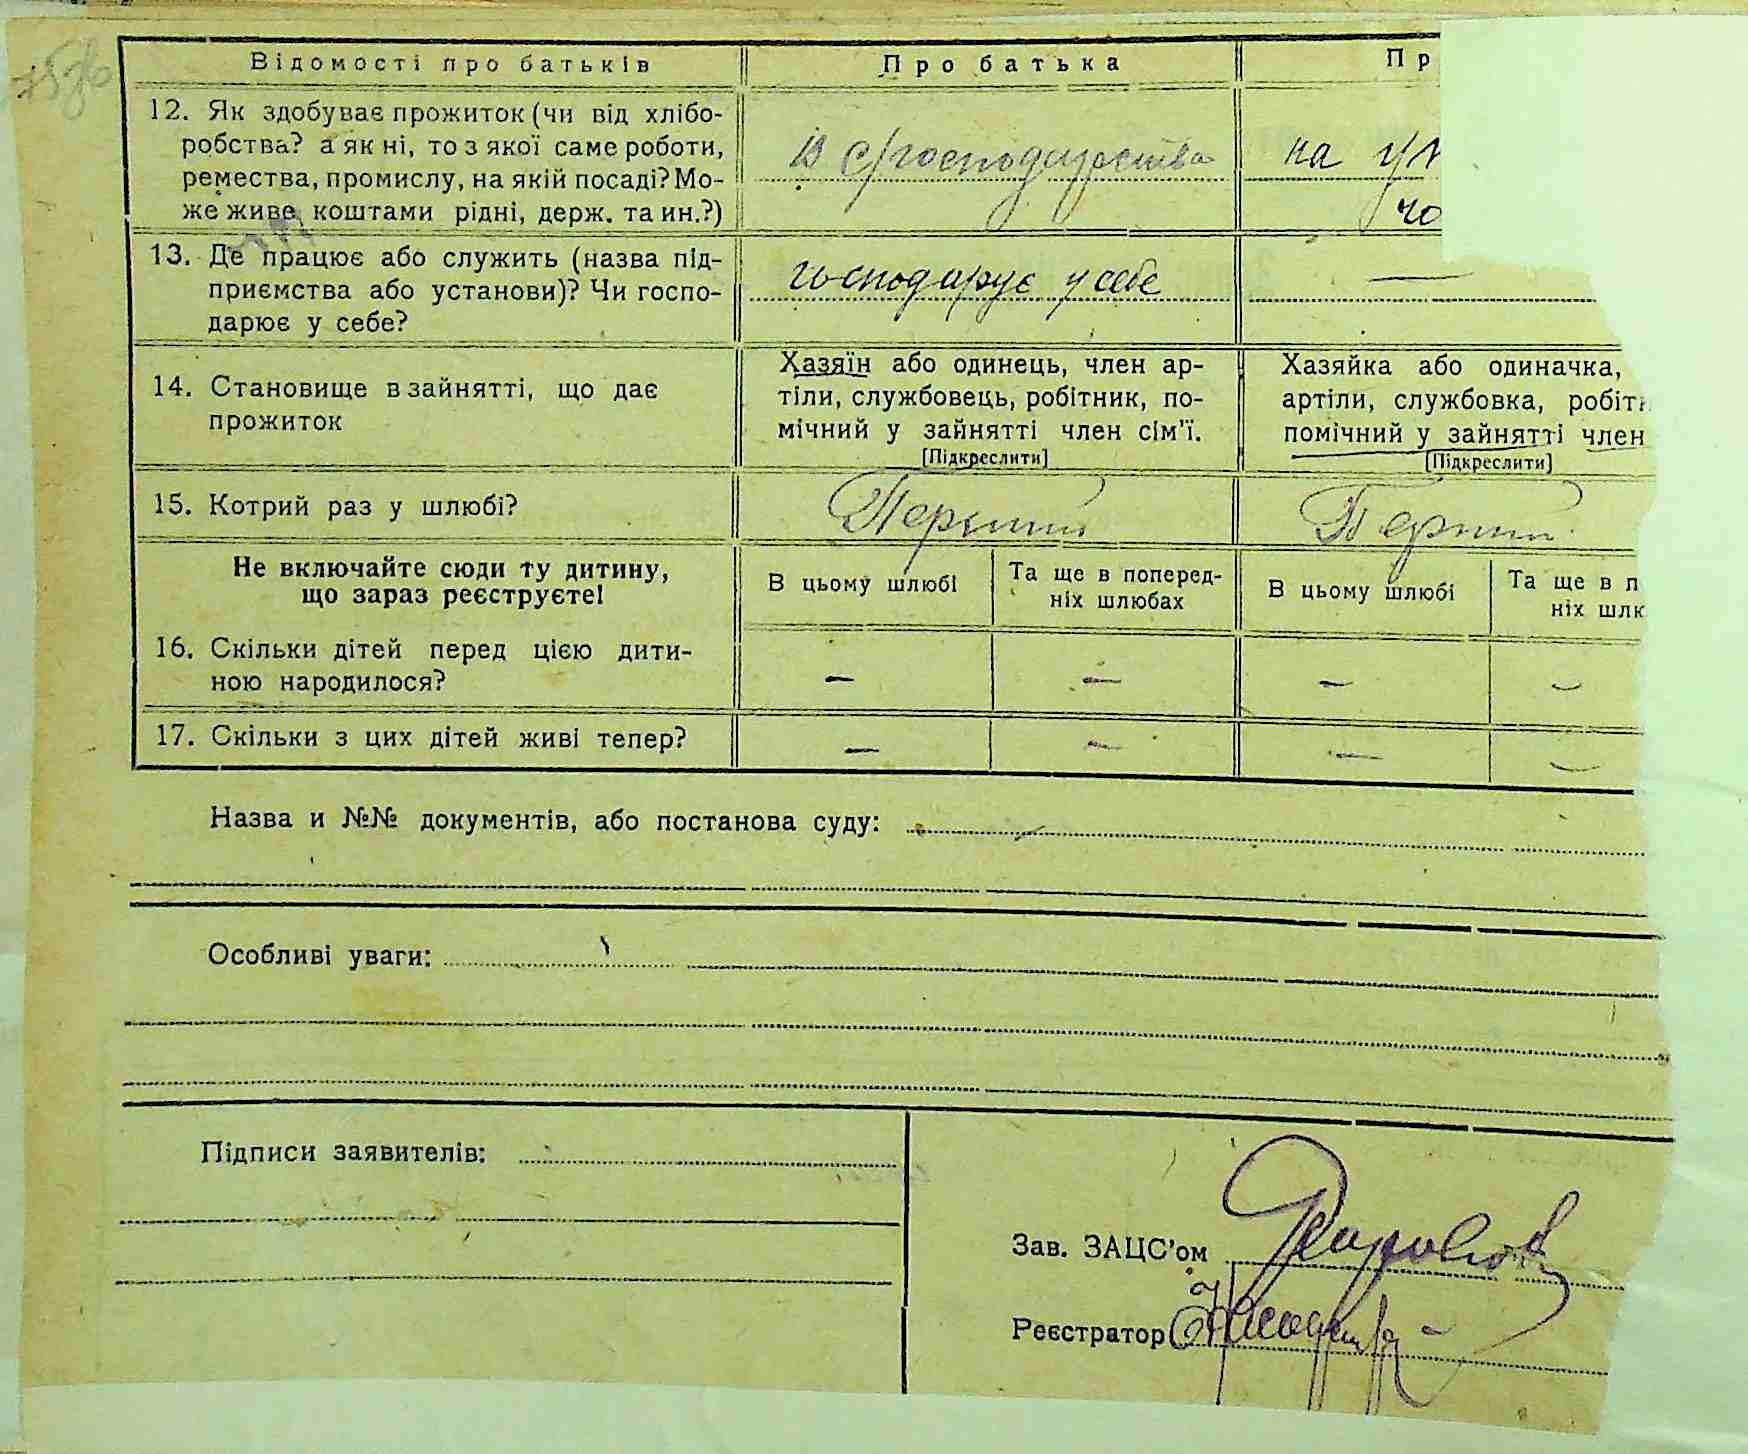 Відомості про батьків
Про батька
Пр
12. Як здобуває прожиток (чи від хлібо-
робства? а як ні, то з якої саме роботи,
ремества, промислу, на якій посаді? Мо-
же живе коштами рідні, держ. та ин.?)
із с/господарства
на ут
чо
13. Де працює або служить (назва під-
приємства або установи)? Чи госпо-
дарює у себе?
господарує у себе
—
14. Становище в зайнятті, що дає
прожиток
Хазяїн або одинець, член ар-
тіли, службовець, робітник, по-
мічний у зайнятті член сім'ї.
[Підкреслити]
Хазяйка або одиначка,
артіли, службовка, робітн
помічний у зайнятті член
[Підкреслити]
15. Котрий раз у шлюбі?
Перший
Перший
Не включайте сюди ту дитину,
що зараз реєструєте!
В цьому шлюбі
Та ще в поперед-
ніх шлюбах
В цьому шлюбі
Та ще в п
ніх шлю
16. Скільки дітей перед цією дити-
ною народилося?
— — — —
17. Скільки з цих дітей живі тепер?
— — — —
Назва и №№ документів, або постанова суду:
Особливі уваги:
Підписи заявителів:
Зав. ЗАЦС'ом
Реєстратор